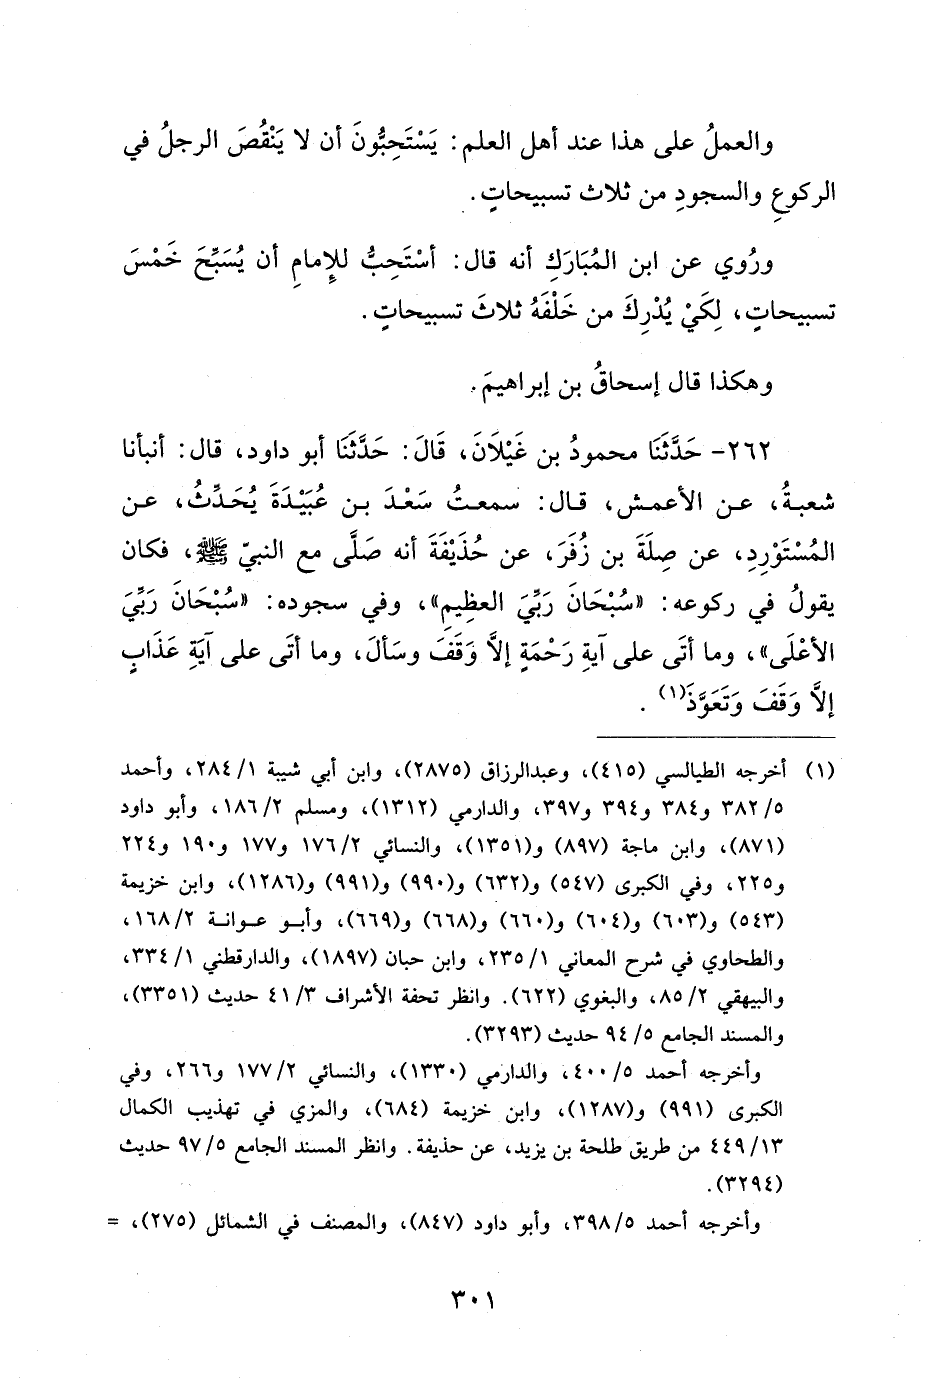 والعملُ على هذا عند أهل العلم: يَسْتَحِبُّونَ أن لا يَنْقُصَ الرجلُ في
الركوعِ والسجودِ من ثلاث تسبيحاتٍ.
ورُوي عن ابن المُبَارَكِ أنه قال: أسْتَحِبُّ للإمامِ أن يُسَبِّحَ خَمْسَ
تسبيحاتٍ، لِكَيْ يُدْرِكَ من خَلْفَهُ ثلاثَ تسبيحاتٍ.
وهكذا قال إسحاقُ بن إبراهيمَ.
٢٦٢- حَدَّثَنَا محمودُ بن غَيْلَانَ، قَالَ: حَدَّثَنَا أبو داود، قال: أنبأنا
شعبةُ، عن الأعمش، قال: سمعتُ سَعْدَ بن عُبَيْدَةَ يُحَدِّثُ، عن
المُسْتَوْرِدِ، عن صِلَةَ بن زُفَرَ، عن حُذَيْفَةَ أنه صَلَّى مع النبيّ ﷺ، فكان
يقولُ في ركوعه: «سُبْحَانَ رَبِّيَ العظِيمِ»، وفي سجوده: «سُبْحَانَ رَبِّيَ
الأعْلَى»، وما أتَى على آيةِ رَحْمَةٍ إلاَّ وَقَفَ وسَألَ، وما أتَى على آيَةِ عَذَابٍ
إلاَّ وَقَفَ وَتَعَوَّذَ(١).
(١) أخرجه الطيالسي (٤١٥)، وعبدالرزاق (٢٨٧٥)، وابن أبي شيبة ١/ ٢٨٤، وأحمد
٥/ ٣٨٢ و٣٨٤ و٣٩٤ و٣٩٧، والدارمي (١٣١٢)، ومسلم ٢/ ١٨٦، وأبو داود
(٨٧١)، وابن ماجة (٨٩٧) و(١٣٥١)، والنسائي ٢/ ١٧٦ و١٧٧ و١٩٠ و٢٢٤
و٢٢٥، وفي الكبرى (٥٤٧) و(٦٣٢) و(٩٩٠) و(٩٩١) و(١٢٨٦)، وابن خزيمة
(٥٤٣) و(٦٠٣) و(٦٠٤) و(٦٦٠) و(٦٦٨) و(٦٦٩)، وأبو عوانة ٢/ ١٦٨،
والطحاوي في شرح المعاني ١/ ٢٣٥، وابن حبان (١٨٩٧)، والدارقطني ١/ ٣٣٤،
والبيهقي ٢/ ٨٥، والبغوي (٦٢٢). وانظر تحفة الأشراف ٣/ ٤١ حديث (٣٣٥١)،
والمسند الجامع ٥/ ٩٤ حديث (٣٢٩٣).
وأخرجه أحمد ٥/ ٤٠٠، والدارمي (١٣٣٠)، والنسائي ٢/ ١٧٧ و٢٦٦، وفي
الكبرى (٩٩١) و(١٢٨٧)، وابن خزيمة (٦٨٤)، والمزي في تهذيب الكمال
١٣/ ٤٤٩ من طريق طلحة بن يزيد، عن حذيفة. وانظر المسند الجامع ٥/ ٩٧ حديث
(٣٢٩٤).
وأخرجه أحمد ٥/ ٣٩٨، وأبو داود (٨٤٧)، والمصنف في الشمائل (٢٧٥)، =
٣٠١